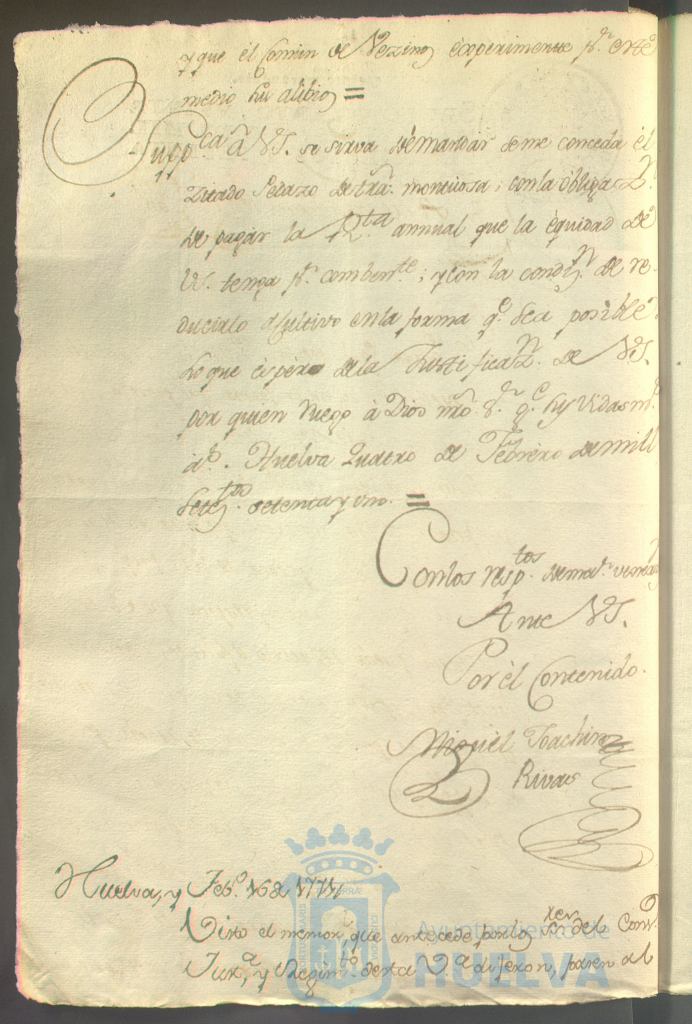 y que el Comun de Vezinos experimente pr. este
medio su alibio =
Suppca. â VS. se sirva demandar se me conceda él
Zitado Pedazo de trrã. montuosa; con la obligazn.
de pagár la Rta. annual que la équidad de
VS. tenga pr. combente.; y con la condizn. de re-
ducirlo â cultivo en la forma qe. sea posible
Lo que éspéro de la Justificazn. de VS.
por quien ruego â Dios nrô. Sr. ge. sus Vidas ms.
as. Huelva Quatro de Febrero de mill
setezttos. setenta y uno. =
Con los resptos. demar. venerazn.
Ante VS.
Por él Contenido.
Miguel Joachin
Rivas
Huelva, y Febo. 16 de 1771
Visto el memorl. que antecede por los sres. del Conzo.
Jusa. y Regimto. desta Va. dijeron, pasen al
Ayuntamiento de
HUELVA